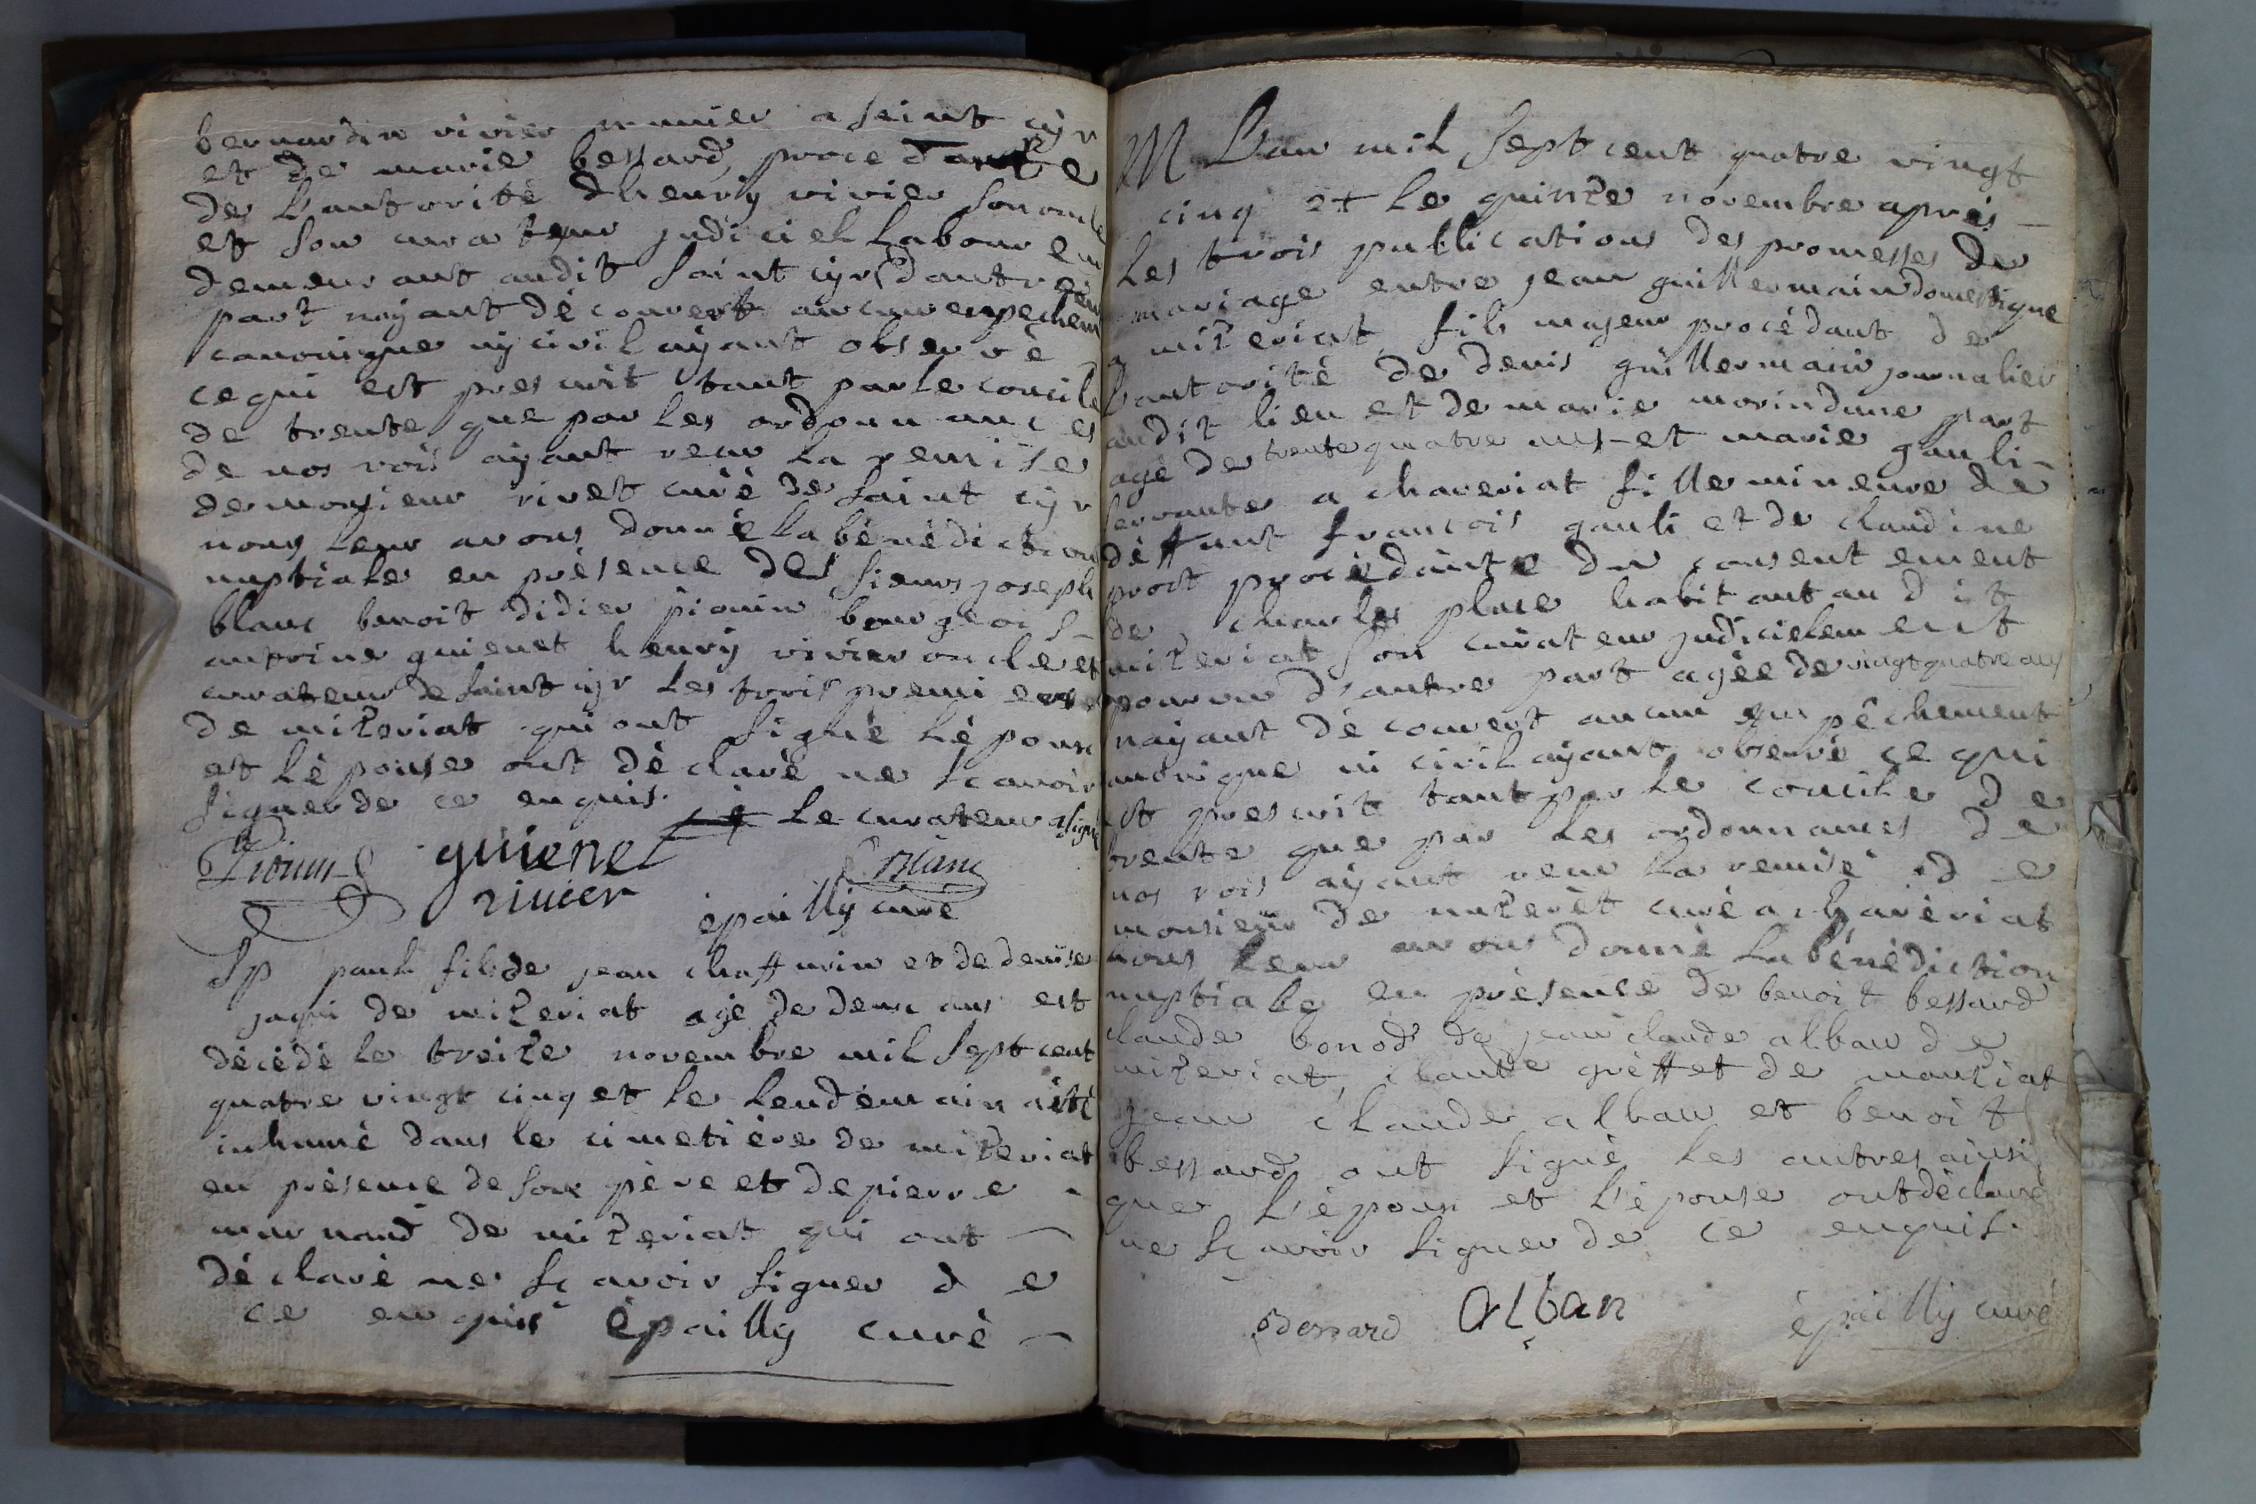 bernardin vivier munier a saint cyr
et de marie bessard, procedante
de l'autorité d'henry vivier son oncle
et son curateur judiciel laboureur
demeurant audit saint cyr d'autre
part n'ayant découvert aucun enpechem
canonique ny civil ayant observé
ce qui est prescrit tant par le concile
de trente que par les ordonnances
de nos rois ayant reçu la remise
de monsieur rivet curé de saint cyr
nous leur avons donné la bénédiction
nuptiale en présence des sieurs joseph
blanc benoit didier pionin bourgeois
antoine guienet henry vivier oncle et
curateur de saint cyr les trois premiers
de mizeriat qui ont signé l'époux
et l'épouse ont déclaré ne scavoir
signer de ce enquis. le curateur a signé
Pionin guienet Blanc
vivier
épailly curé
Sp paul fils de jean chaffurin et de denise
jaqui de mizeriat agé de deux ans est
décédé le treize novembre mil sept cent
quatre vingt cinq et le lendemain a été
inhumé dans le cimetière de mizeriat
en présence de son père et de pierre
marnand de mizeriat qui ont
déclaré ne sçavoir signer de
ce enquis épailly curé
M L'an mil sept cent quatre vingt
cinq et le quinze novembre après
les trois publications des promesses de
mariage entre jean guillermain domestique
a mizeriat fils majeur procédant de
l'autorité de denis guillermain journalier
audit lieu et de marie morin d'une part
agé de trente quatre ans et marie gauli
servante a chaveriat fille mineure de
défunt francois gauli et de claudine
prost procédante du consentement
de charles place habitant audit
mizeriat son curateur judicielement
pourvu d'autre part agée de vingt quatre ans
n'ayant découvert aucun empêchement
canonique ni civil ayant observé ce qui
est prescrit tant par le concile de
trente que par les ordonnances de
nos rois ayant reçu la remise de
monsieur de mizerèt curé a chavériat
nous leur avons donné la bénédiction
nuptiale en présence de benoit bessard
claude bonod de jean claude alban de
mizeriat, claude grèffet de montziat
jean claude alban et benoit
bessard ont signé les autres ainsi
que l'époux et l'épouse ont déclaré
ne sçavoir signer de ce enquis.
Bessard Alban épailly curé